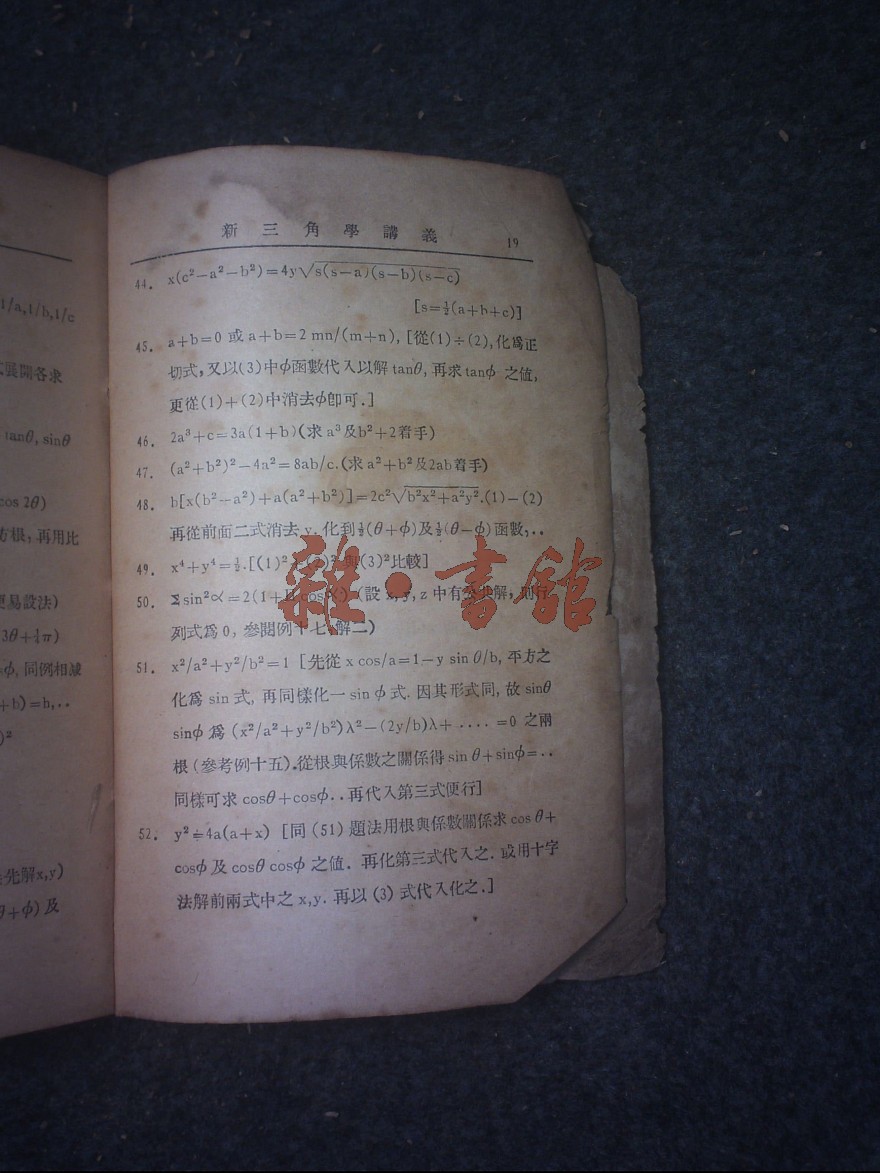 1/a,1/b,1/c
展開各求
tanθ, sinθ
cos 2θ)
方根, 再用比
更易設法)
3θ+¼π)
=φ, 同例相減
+b)=h,..
)²
先解x,y)
θ+φ) 及
新三角學講義 19
44. x(c²−a²−b²)=4y√s(s−a)(s−b)(s−c)
[s=½(a+b+c)]
45. a+b=0 或 a+b=2 mn/(m+n), [從(1)÷(2), 化爲正
切式, 又以(3)中φ函數代入以解tanθ, 再求tanφ 之值,
更從(1)+(2)中消去φ卽可.]
46. 2a³+c=3a(1+b)(求 a³及b²+2着手)
47. (a²+b²)²−4a²=8ab/c.(求 a²+b²及2ab着手)
48. b[x(b²−a²)+a(a²+b²)]=2c²√b²x²+a²y².(1)−(2)
再從前面二式消去 y, 化到½(θ+φ)及½(θ−φ)函數,..
49. x⁴+y⁴=½.[(1)² (2)² 與(3)²比較]
50. Σsin²α=2(1+Π cosα) (設 x, y, z 中有公共解, 則行
列式爲 0, 參閱例十七 解二)
51. x²/a²+y²/b²=1 [先從 x cos/a=1−y sin θ/b, 平方之
化爲 sin 式, 再同樣化一 sin φ 式. 因其形式同, 故 sinθ
sinφ 爲 (x²/a²+y²/b²)λ²−(2y/b)λ+ .... =0 之兩
根 (參考例十五).從根與係數之關係得 sin θ+sinφ=..
同樣可求 cosθ+cosφ..再代入第三式便行]
52. y²=4a(a+x) [同 (51) 題法用根與係數關係求 cos θ+
cosφ 及 cosθ cosφ 之値. 再化第三式代入之. 或用十字
法解前兩式中之 x,y. 再以 (3) 式代入化之.]
雜·書館